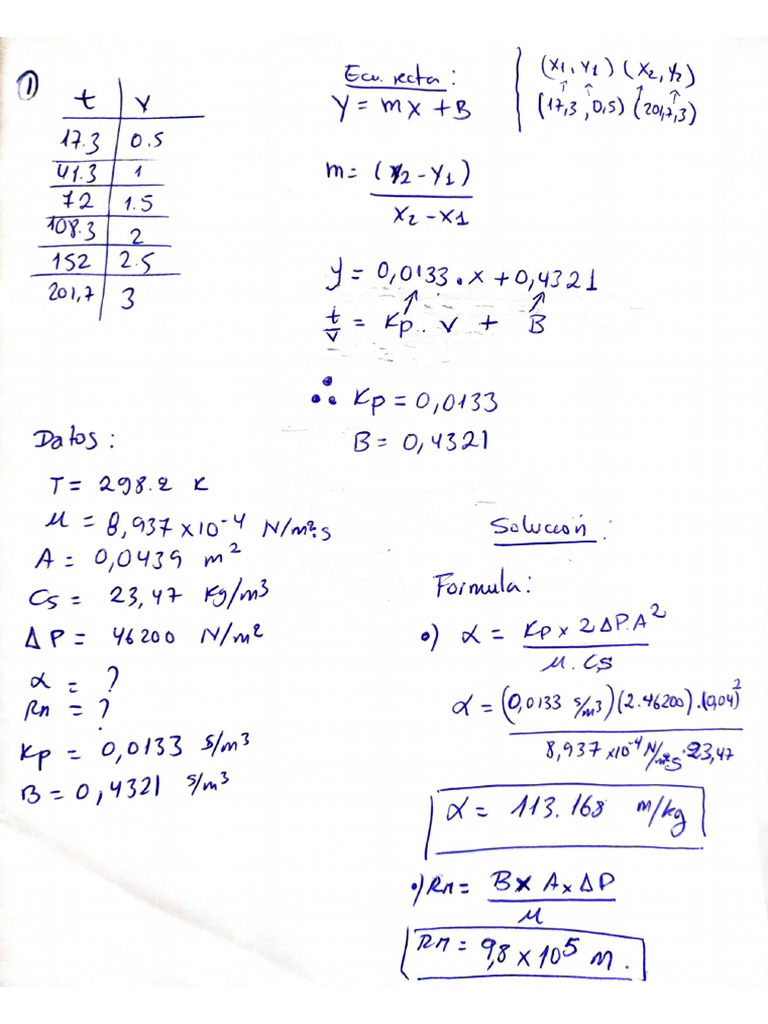 ①
t | V
17.3 | 0.5
41.3 | 1
72 | 1.5
108.3 | 2
152 | 2.5
201,7 | 3
Ecu. recta:
Y = mX + B
(X1, Y1) (X2, Y2)
(17,3, 0,5) (201,7, 3)
m = (Y2 - Y1)
X2 - X1
y = 0,0133 . x + 0,4321
t/V = Kp . V + B
∴ Kp = 0,0133
B = 0,4321
Datos:
T = 298.2 K
μ = 8,937 x 10⁻⁴ N/m².s
A = 0,0439 m²
Cs = 23,47 Kg/m³
ΔP = 46200 N/m²
α = ?
Rm = ?
Kp = 0,0133 s/m³
B = 0,4321 s/m³
Solución:
Formula:
•) α = Kp x 2 ΔP.A²
μ . Cs
α = (0,0133 s/m³)(2.46200).(0,04)²
8,937 x10⁻⁴ N/m².s . 23,47
α = 113.168 m/kg
•) Rm = B x A x ΔP
μ
Rm = 9,8 x 10⁵ m.